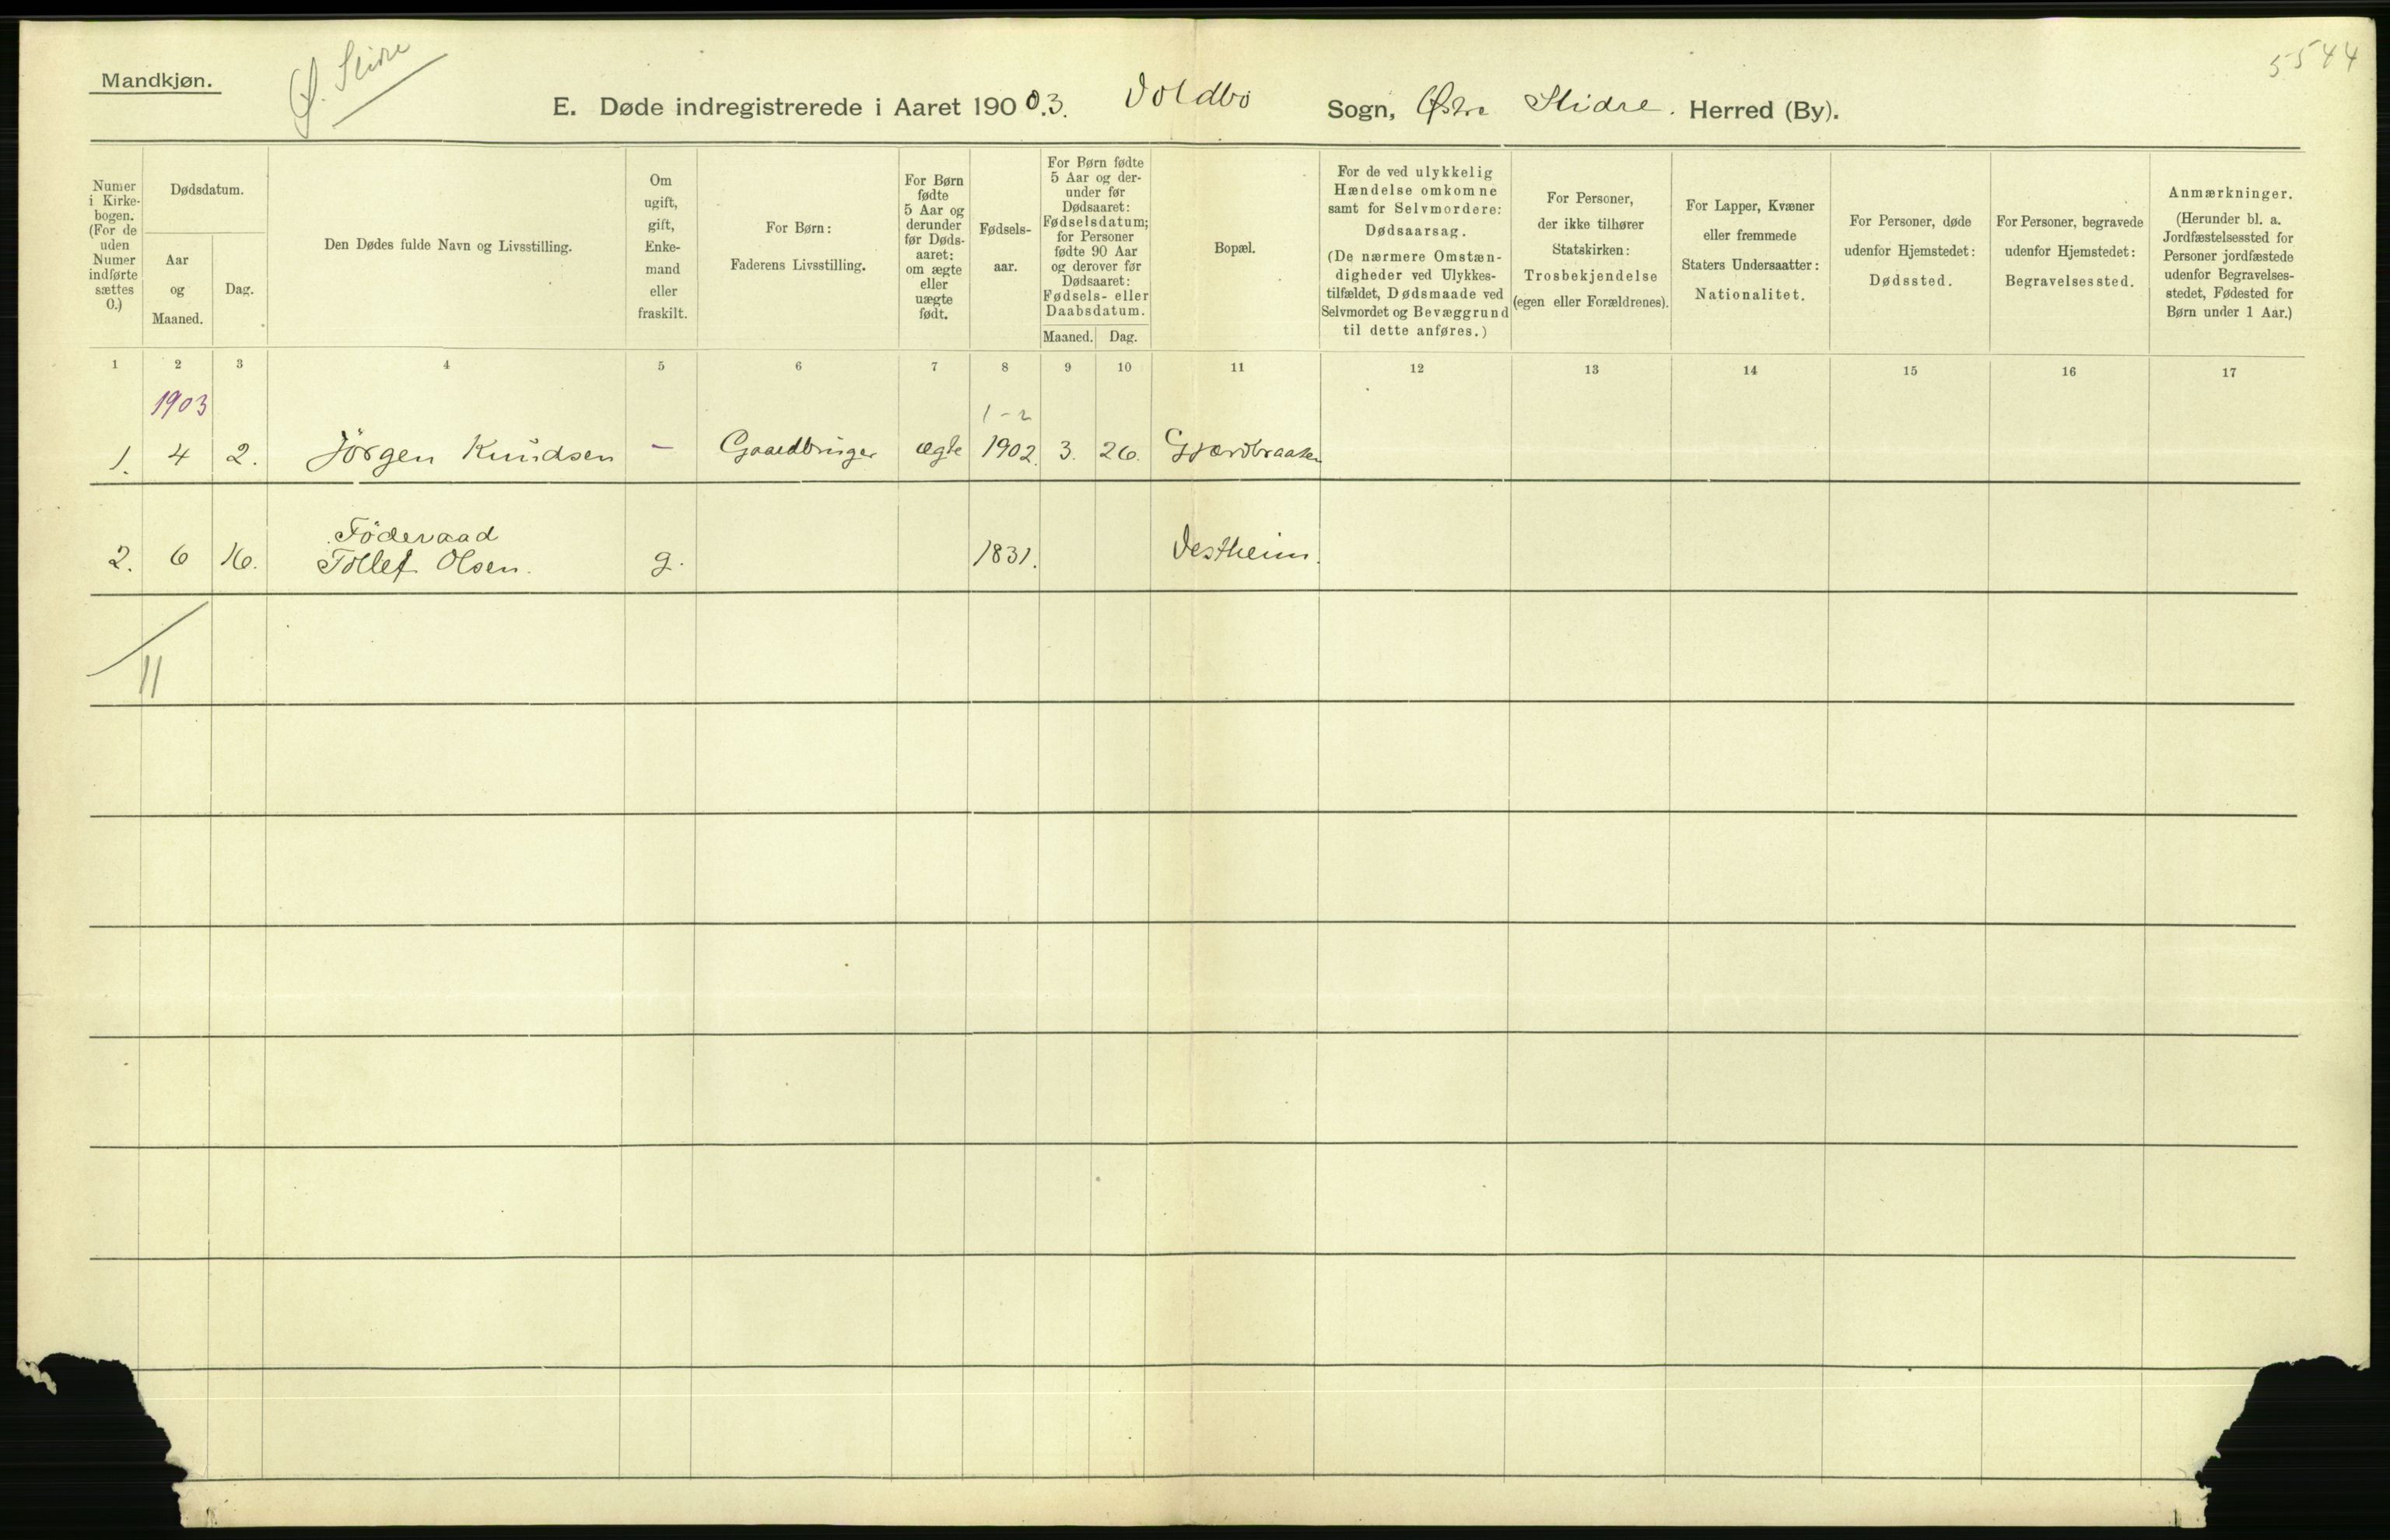 Mandkjøn.
Ø. Slidre
5544
E. Døde indregistrerede i Aaret 1900.3. Voldbo Sogn, Østre Slidre. Herred (By).
Numer i Kirke-
bogen.
(For de
uden
Numer
indførte
sættes
0.)
Dødsdatum.
Aar
og
Maaned.
Dag.
Den Dødes fulde Navn og Livsstilling.
Om
ugift,
gift,
Enke-
mand
eller
fraskilt.
For Børn:
Faderens Livsstilling.
For Børn
fødte
5 Aar og
derunder
før Døds-
aaret:
om ægte
eller
uægte
født.
Fødsels-
aar.
For Børn fødte
5 Aar og der-
under før
Dødsaaret:
Fødselsdatum;
for Personer
fødte 90 Aar
og derover før
Dødsaaret:
Fødsels- eller
Daabsdatum.
Maaned. Dag.
Bopæl.
For de ved ulykkelig
Hændelse omkomne
samt for Selvmordere:
Dødsaarsag.
(De nærmere Omstæn-
digheder ved Ulykkes-
tilfældet, Dødsmaade ved
Selvmordet og Bevæggrund
til dette anføres.)
For Personer,
der ikke tilhører
Statskirken:
Trosbekjendelse
(egen eller Forældrenes).
For Lapper, Kvæner
eller fremmede
Staters Undersaatter:
Nationalitet.
For Personer, døde
udenfor Hjemstedet:
Dødssted.
For Personer, begravede
udenfor Hjemstedet:
Begravelsessted.
Anmærkninger.
(Herunder bl. a.
Jordfæstelsessted for
Personer jordfæstede
udenfor Begravelses-
stedet, Fødested for
Børn under 1 Aar.)
1 2 3 4 5 6 7 8 9 10 11 12 13 14 15 16 17
1903
1-2
1. 4 2. Jörgen Knudsen - Gaardbruger ægte 1902. 3. 26.
Föderaad
2. 6 16. Tollef Olsen. g. 1831. Vestheim.
11